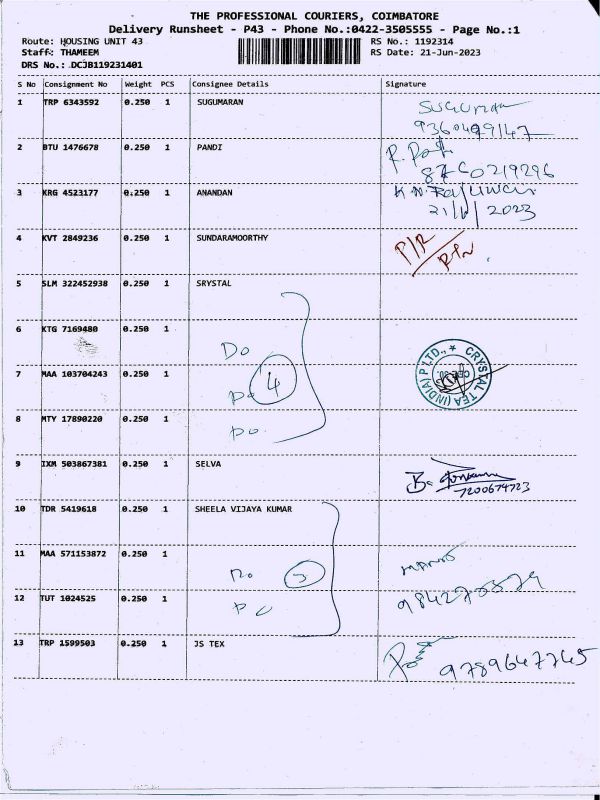 THE PROFESSIONAL COURIERS, COIMBATORE
Delivery Runsheet - P43 - Phone No.:0422-3505555 - Page No.:1
Route: HOUSING UNIT 43
RS No.: 1192314
Staff: THAMEEM
RS Date: 21-Jun-2023
DRS No.: DCJB119231401
S No Consignment No Weight PCS Consignee Details Signature
1 TRP 6343592 0.250 1 SUGUMARAN
2 BTU 1476678 0.250 1 PANDI
3 KRG 4523177 0.250 1 ANANDAN
21/6/2023
4 KVT 2849236 0.250 1 SUNDARAMOORTHY
5 SLM 322452938 0.250 1 SRYSTAL
6 KTG 7169480 0.250 1
Do
7 MAA 103704243 0.250 1
Do 4
CRYSTAL TEA (INDIA) P LTD., ★
8 MTY 17890220 0.250 1
Do
9 IXM 503867381 0.250 1 SELVA
7200674723
10 TDR 5419618 0.250 1 SHEELA VIJAYA KUMAR
11 MAA 571153872 0.250 1
Do 3
12 TUT 1024525 0.250 1
Do
13 TRP 1599503 0.250 1 JS TEX
9789647745